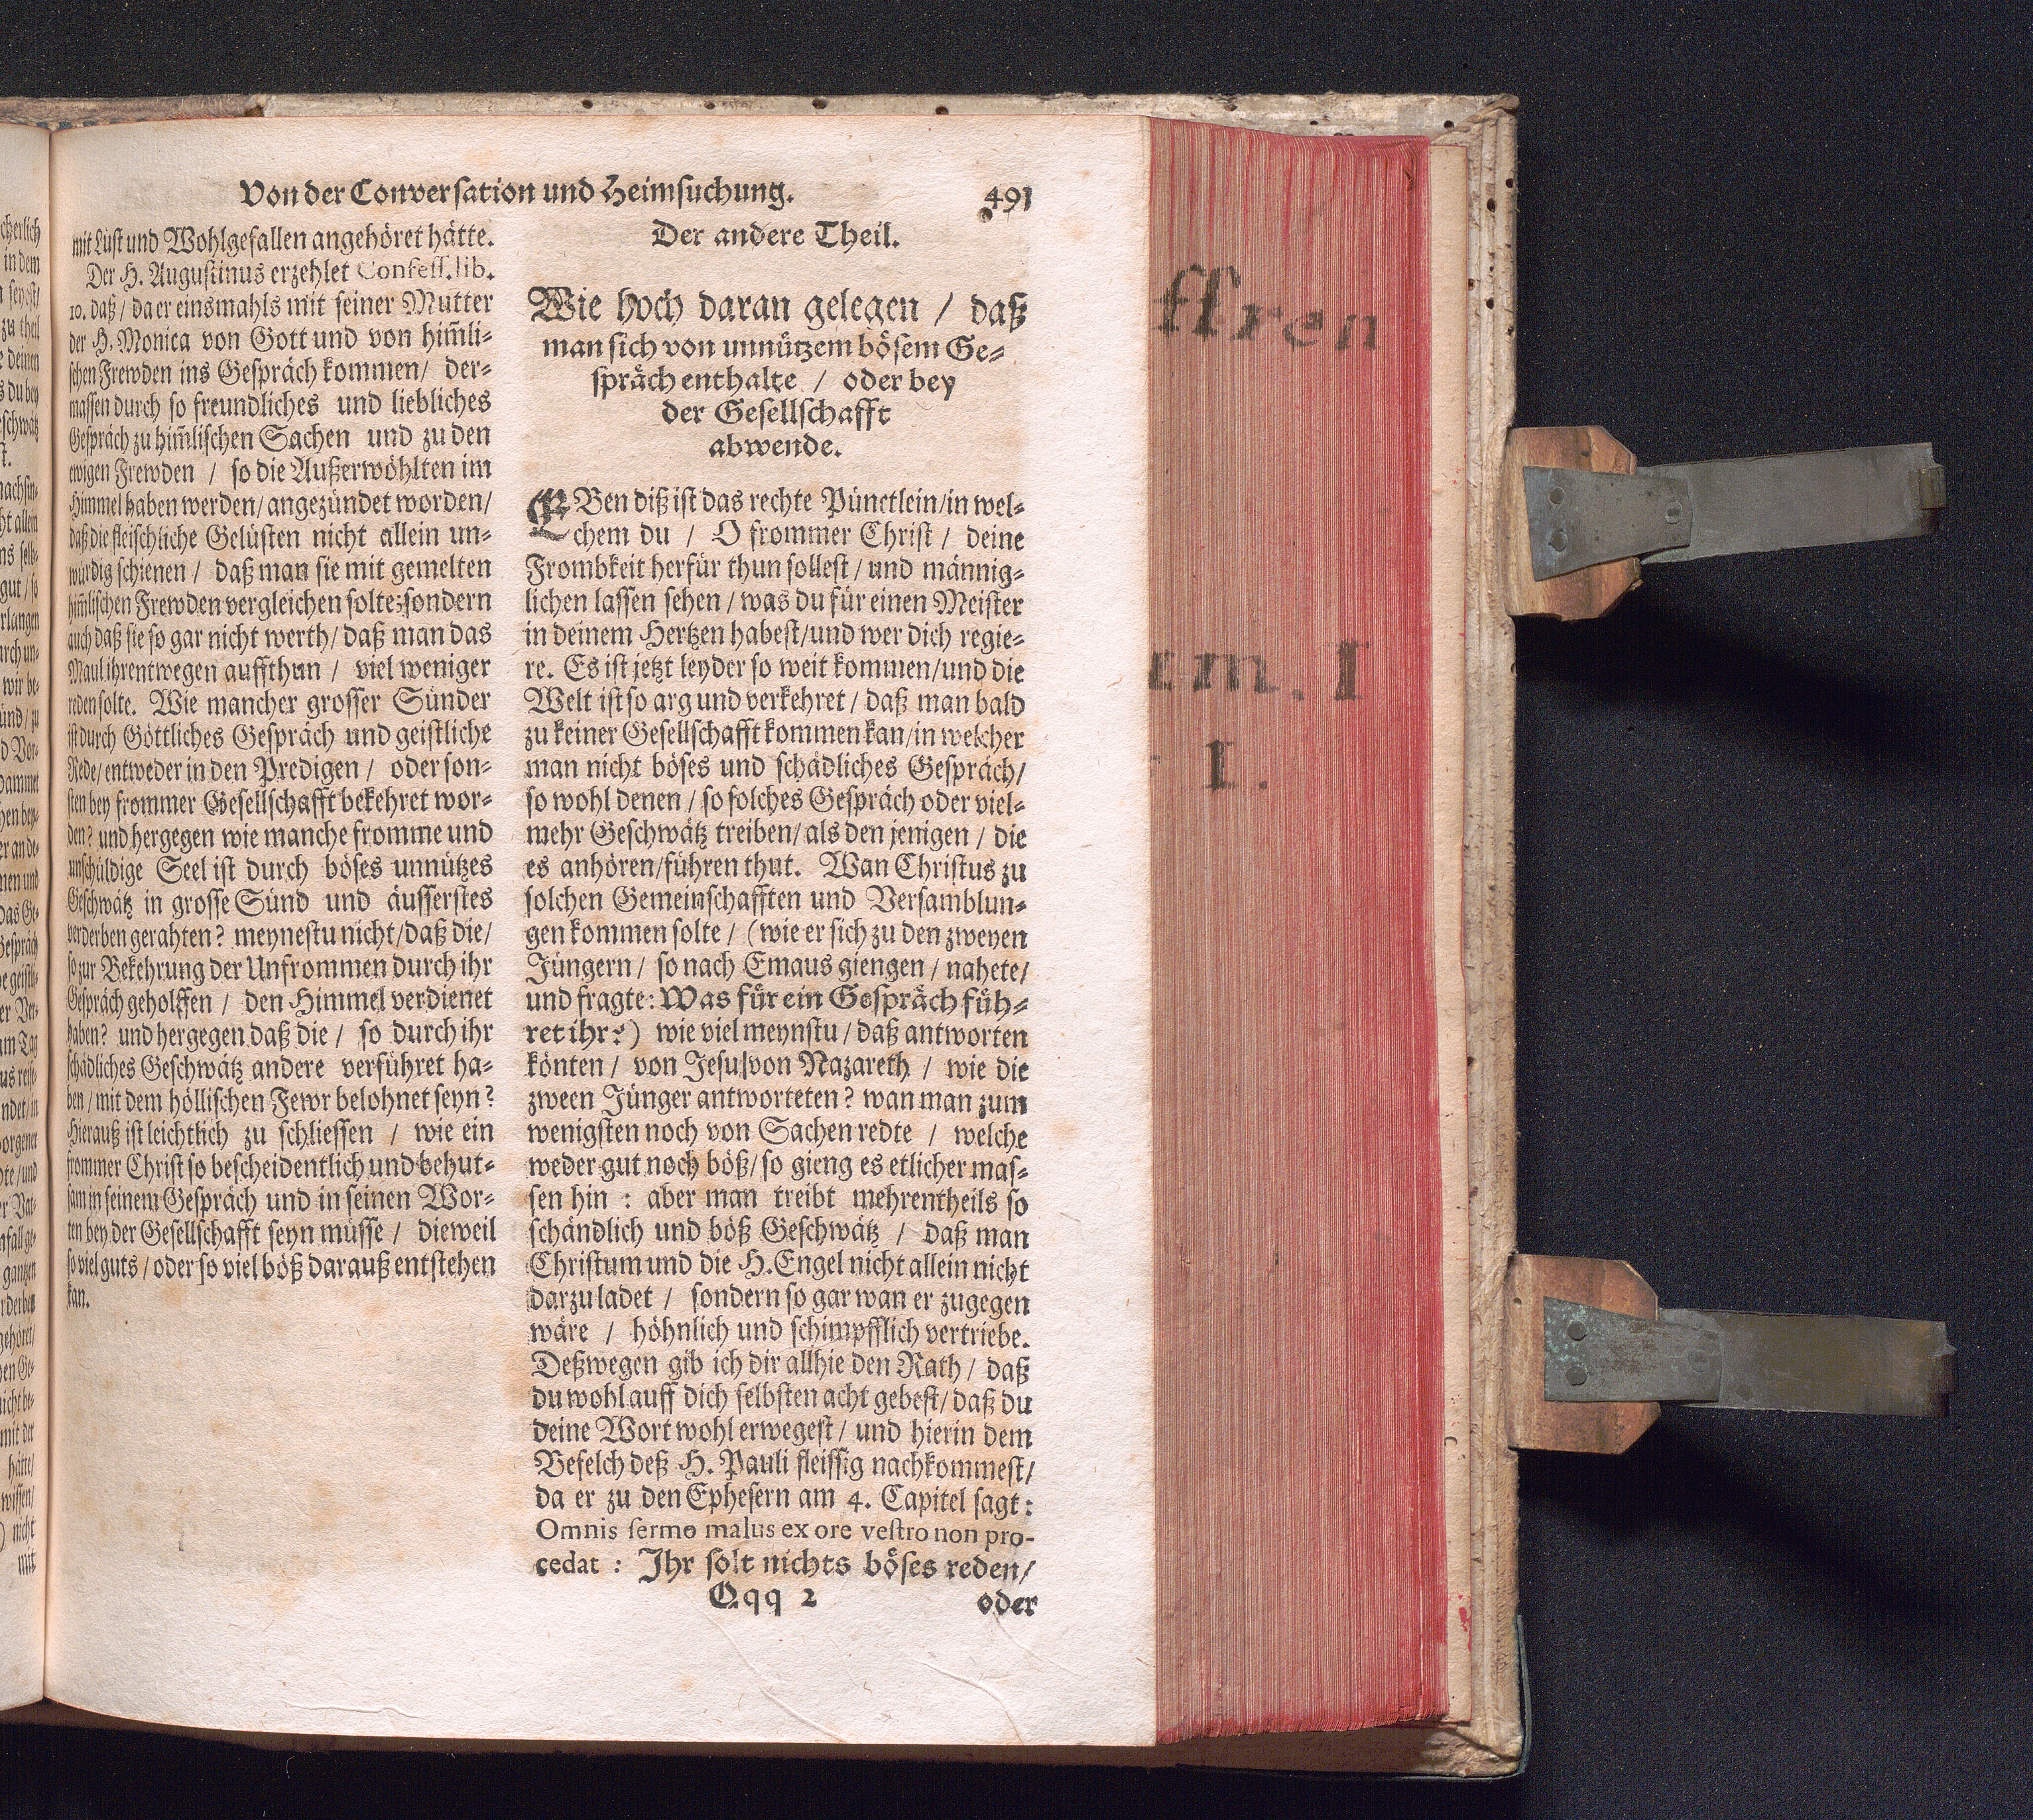 Von der Conversation und Heimsuchung. 491
mit Lust und Wohlgefallen angehöret hätte.
Der H. Augustinus erzehlet Confess. lib.
10. daß / da er einsmahls mit seiner Mutter
der H. Monica von Gott und von him̃li-
schen Frewden ins Gespräch kommen / der-
massen durch so freundliches und liebliches
Gespräch zu him̃lischen Sachen und zu den
ewigen Frewden / so die Außerwöhlten im
Himmel haben werden / angezündet worden /
daß die fleischliche Gelüsten nicht allein un-
würdig schienen / daß man sie mit gemelten
him̃lischen Frewden vergleichen solte; sondern
auch daß sie so gar nicht werth / daß man das
Maul ihrentwegen auffthun / viel weniger
reden solte. Wie mancher grosser Sünder
ist durch Göttliches Gespräch und geistliche
Rede / entweder in den Predigen / oder son-
sten bey frommer Gesellschafft bekehret wor-
den? und hergegen wie manche fromme und
unschuldige Seel ist durch böses unnützes
Geschwätz in grosse Sünd und äusserstes
verderben gerahten? meynestu nicht / daß die /
so zur Bekehrung der Unfrommen durch ihr
Gespräch geholffen / den Himmel verdienet
haben? und hergegen daß die / so durch ihr
schädliches Geschwätz andere verführet ha-
ben / mit dem höllischen Fewr belohnet seyn?
Hierauß ist leichtlich zu schliessen / wie ein
frommer Christ so bescheidentlich und behut-
sam in seinem Gespräch und in seinen Wor-
ten bey der Gesellschafft seyn müsse / dieweil
so viel guts / oder so viel böß darauß entstehen
kan.
Der andere Theil.
Wie hoch daran gelegen / daß
man sich von unnützem bösem Ge-
spräch enthalte / oder bey
der Gesellschafft
abwende.
EBen diß ist das rechte Pünctlein / in wel-
chem du / O frommer Christ / deine
Frombkeit herfür thun sollest / und männig-
lichen lassen sehen / was du für einen Meister
in deinem Hertzen habest / und wer dich regie-
re. Es ist jetzt leyder so weit kommen / und die
Welt ist so arg und verkehret / daß man bald
zu keiner Gesellschafft kommen kan / in welcher
man nicht böses und schädliches Gespräch /
so wohl denen / so solches Gespräch oder viel-
mehr Geschwätz treiben / als den jenigen / die
es anhören / führen thut. Wan Christus zu
solchen Gemeinschafften und Versamblun-
gen kommen solte / (wie er sich zu den zweyen
Jüngern / so nach Emaus giengen / nahete /
und fragte: Was für ein Gespräch füh-
ret ihr?) wie viel meynstu / daß antworten
könten / von Jesu von Nazareth / wie die
zween Jünger antworteten? wan man zum
wenigsten noch von Sachen redte / welche
weder gut noch böß / so gieng es etlicher mas-
sen hin : aber man treibt mehrentheils so
schändlich und böß Geschwätz / daß man
Christum und die H. Engel nicht allein nicht
darzu ladet / sondern so gar wan er zugegen
wäre / höhnlich und schimpfflich vertriebe.
Deßwegen gib ich dir allhie den Rath / daß
du wohl auff dich selbsten acht gebest / daß du
deine Wort wohl erwegest / und hierin dem
Befelch deß H. Pauli fleissig nachkommest /
da er zu den Ephesern am 4. Capitel sagt :
Omnis sermo malus ex ore vestro non pro-
cedat : Ihr solt nichts böses reden /
Qqq 2 oder
ffren
em. I
I.